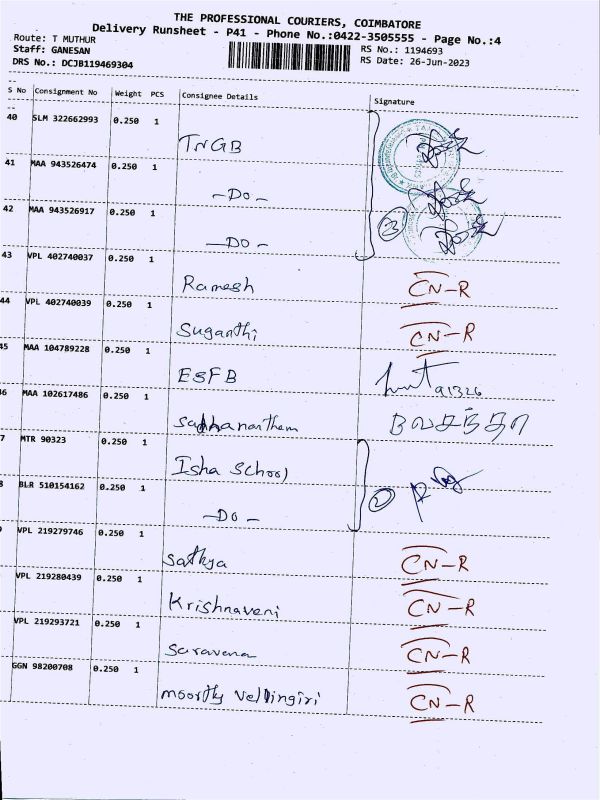 THE PROFESSIONAL COURIERS, COIMBATORE
Delivery Runsheet - P41 - Phone No.:0422-3505555 - Page No.:4
Route: T MUTHUR
RS No.: 1194693
Staff: GANESAN
RS Date: 26-Jun-2023
DRS No.: DCJB119469304
S No Consignment No Weight PCS Consignee Details Signature
40 SLM 322662993 0.250 1 TNGB
41 MAA 943526474 0.250 1 -Do-
42 MAA 943526917 0.250 1 -Do-
43 VPL 402740037 0.250 1 Ramesh CN-R
44 VPL 402740039 0.250 1 Suganthi CN-R
45 MAA 104789228 0.250 1 ESFB 91326
46 MAA 102617486 0.250 1 வசந்தா
7 MTR 90323 0.250 1 Isha School
8 BLR 510154162 0.250 1 -Do- 2
VPL 219279746 0.250 1 Sathya CN-R
VPL 219280439 0.250 1 Krishnaveni CN-R
VPL 219293721 0.250 1 Saravana CN-R
GGN 98200708 0.250 1 moorthy Vellingiri CN-R